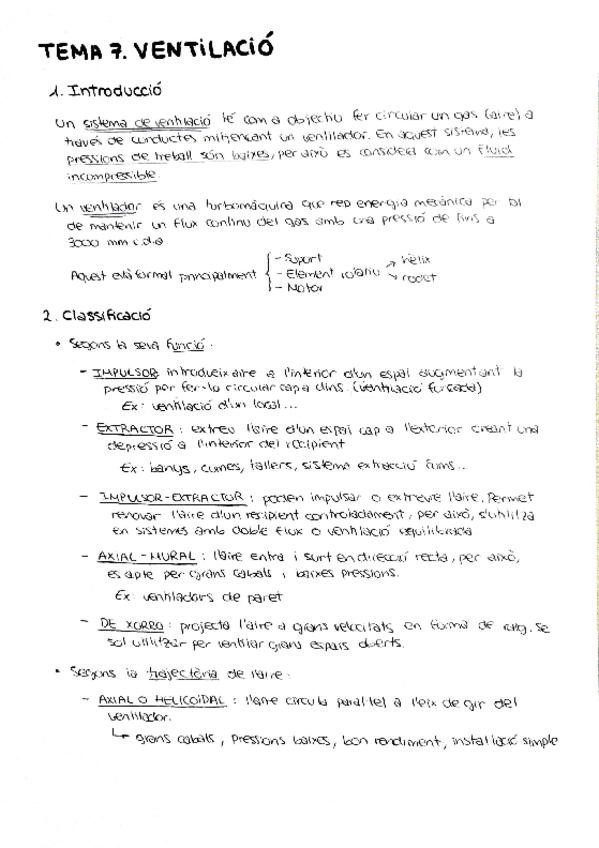 TEMA 7. VENTILACIÓ
1. Introducció
Un sistema de ventilació té com a objectiu fer circular un gas (aire) a
través de conductes mitjançant un ventilador. En aquest sistema, les
pressions de treball són baixes, per això es considera com un fluid
incompressible.
Un ventilador és una turbomàquina que rep energia mecànica per tal
de mantenir un flux continu del gas amb una pressió de fins a
3000 mm c.d.a
Aquest està format principalment
- Suport
- Element rotatiu → hèlix
→ rodet
- Motor
2. Classificació
• Segons la seva funció:
- IMPULSOR: introdueix aire a l'interior d'un espai augmentant la
pressió per fer-lo circular cap a dins. (ventilació forçada)
Ex: ventilació d'un local...
- EXTRACTOR: extreu l'aire d'un espai cap a l'exterior creant una
depressió a l'interior del recipient
Ex: banys, cuines, tallers, sistema extracció fums...
- IMPULSOR-EXTRACTOR: poden impulsar o extreure l'aire. Permet
renovar l'aire d'un recipient controladament, per això, s'utilitza
en sistemes amb doble flux o ventilació equilibrada
- AXIAL-MURAL: l'aire entra i surt en direcció recta, per això,
és apte per grans cabals i baixes pressions.
Ex: ventiladors de paret
- DE XORRO: projecta l'aire a grans velocitats en forma de raig. Se
sol utilitzar per ventilar grans espais oberts.
• Segons la trajectòria de l'aire:
- AXIAL O HELICOÏDAL: l'aire circula paral·lel a l'eix de gir del
ventilador.
↳ grans cabals, pressions baixes, bon rendiment, instal·lació simple